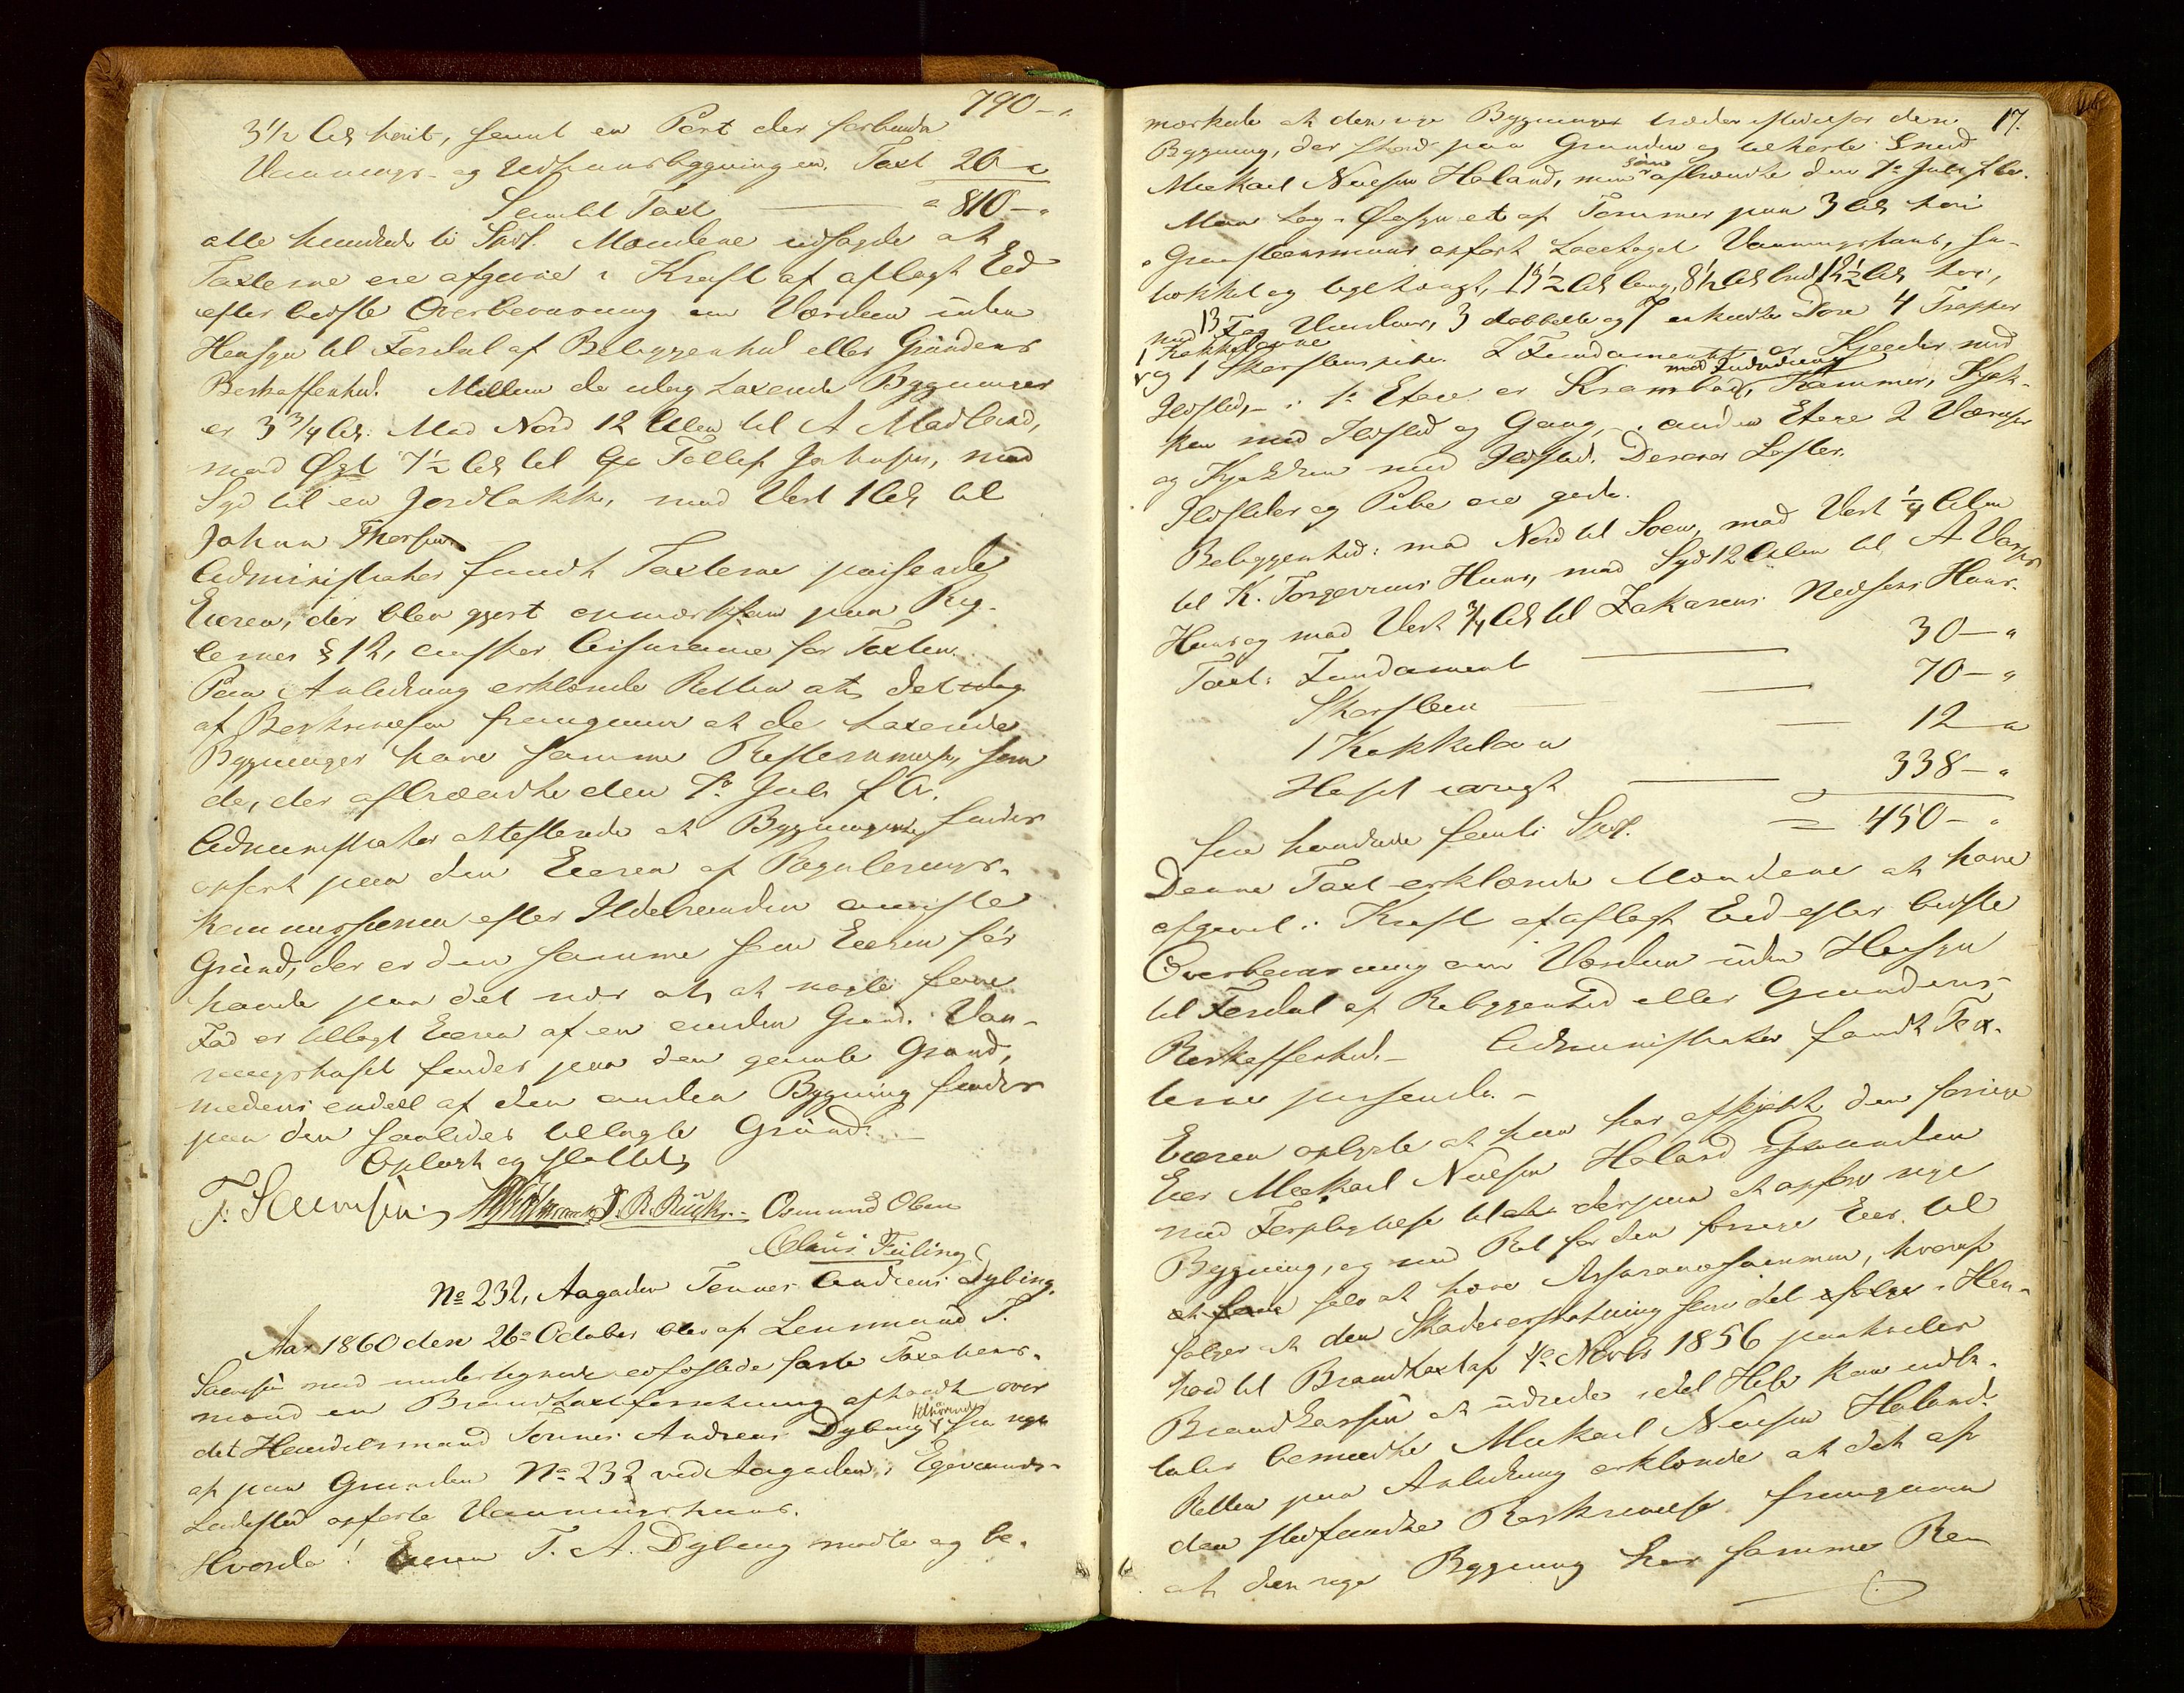 790 - "
3½ Al høit, samt en Port der forbinder
Vaanings- og Udhuusbygningen. Taxt 20 "
Samlet Taxt — " 810 - "
otte hundrede ti Spd. Mændene udsagde at
Taxterne ere afgivne i Kraft af aflagt Eed
efter bedste Overbeviisning om Værdien uden
Hensyn til Fordel af Beliggenhed eller Grundens
Beskaffenhed. Mellem de idag taxerede Bygninger
er 3¾ Al. Mod Nord 12 Alen til A Madland,
mod Øst 7½ Al til Tollef Johnsen, mod
Syd til en Jordløkke, mod Vest 1 Al til
Johan Thorsen.
Administrator fandt Taxterne passende
Eieren, der blev gjort opmærksom paa Reg-
lernes § 12, ønsker Assurance for Taxten.
Paa Anledning erklærede Retten at det idag
af Beskrivelsen fremgaaer at de taxerede
Bygninger have samme Bestemmelse som
de, der afbrændte den 1ste Juli f. A.
Administrator attesterede at Bygningerne findes
opført paa den Eieren af Regulerings-
kommissionen efter Ildebranden anviste
Grund, der er den samme som Eieren før
havde paa det nær at nogle faa
Fod er tillagt Eieren af en anden Grund. Vaa-
ningshuset findes paa den gamle Grund,
medens endeel af den anden Bygning findes
paa den saaledes tillagte Grund.
Oplæst og sluttet
F. Sæmsen P. B. Rück Osmund Olsen
Claus Feiling
No 232, Aagaden Tønnes Andreas Dybing.
Aar 1860 den 26de October blev af Lensmand F.
Sæmsen med undertegnede edfæstede faste Taxations-
mænd en Brandtaxtforretning afholdt over
det Handelsmand Tønnes Andreas Dybing tilhørende fra nye
af paa Grunden No 232 ved Aagaden i Egersunds
Ladested opførte Vaaningshuus.
Hvorda! Eieren T. A. Dybing mødte og be-
17.
mærkede at den nye Bygning træder istedetfor den
Bygning, der stod paa Grunden og tilhørte Smed
Mikael Nielsen Haland, men som afbrændte den 1ste Juli f. A.
Man tog i Øiesyn et af Tømmer paa 3 Al høi
Graasteensmuur opført 2 etages Vaaningshuus, pa-
nelet og teglhængt, 13½ Al lang, 8½ Al bred 12½ Al høi,
med 13 Fag Vinduer, 3 dobbelte og 7 enkelte Døre 4 Trapper
1 Kakkelovne
og 1 Skorsteenspibe. I Fundamentet er Kjelder med
med Indredning
Ildsted, – i 1ste Etage er Krambod, Kammer, Kjøk-
ken med Ildsted og Gang, – i anden Etage 2 Værelser
og Kjøkken med Ildsted. Derover Lofter.
Ildsteder og Pibe ere gode.
Beliggenhed: mod Nord til Søen, mod Vest ¼ Alen
til K. Torgersens Huus, mod Syd 12 Alen til A
Huus og mod Vest ¾ Al til Zakarias Nielsens Huus.
Taxt: Fundament — 30 - "
Skorsteen — 70 - "
1 Kakkelovn — 12 "
Huset iøvrigt — 338 - "
= 450 - "
fire hundrede femti Spd.
Denne Taxt erklærede Mændene at have
afgivet i Kraft af aflagt Eed efter bedste
Overbeviisning om Værdien uden Hensyn
til Fordel af Beliggenhed eller Grundens
Beskaffenhed. – Administrator fandt Tax-
terne passende. –
Eieren oplyste at han har afkjøbt den forrige
Eier Mikael Nielsen Haland Grunden
med Forpligtelse til at derpaa at opføre nye
Bygning, og med Ret for den forrige Eier til
selv at hæve Assurancesummen, hvoraf
følger at den Skadeserstatning som det i Hen-
hold til Brandtaxt af 4de Novbr 1856 paahviler
Brandkassen at udrede i det Hele kan udbe-
tales bemeldte Mikael Nielsen Haland.
Retten paa Anledning erklærede at det af
den stedfundne Beskrivelse fremgaaer
at den nye Bygning har samme Be